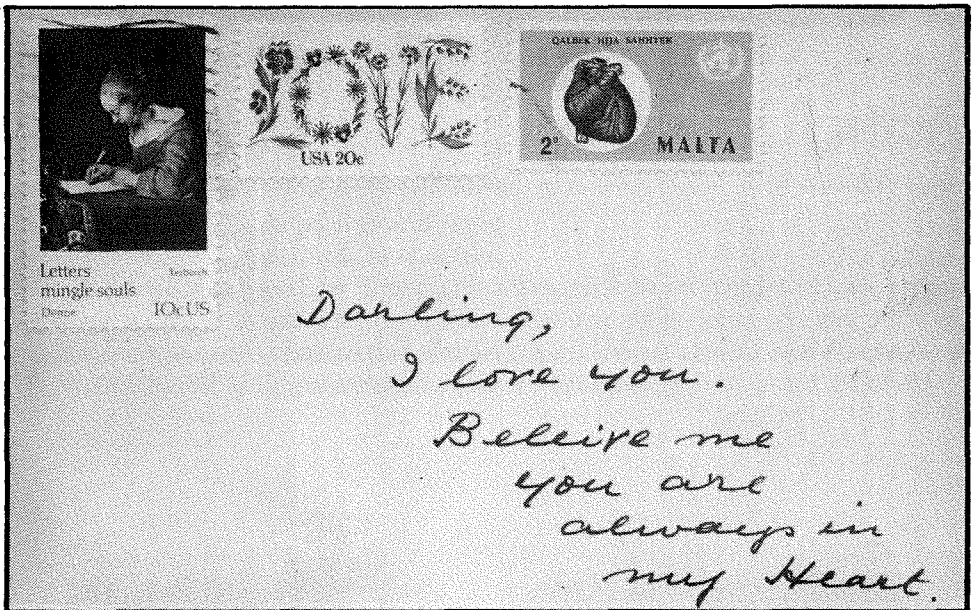 Letters
mingle souls
Donne
Terborch
10c US
LOVE
USA 20c
QALBEK HIJA SAHHTEK
2d
MALTA
Darling,
I love you.
Beleive me
you are
always in
my Heart.